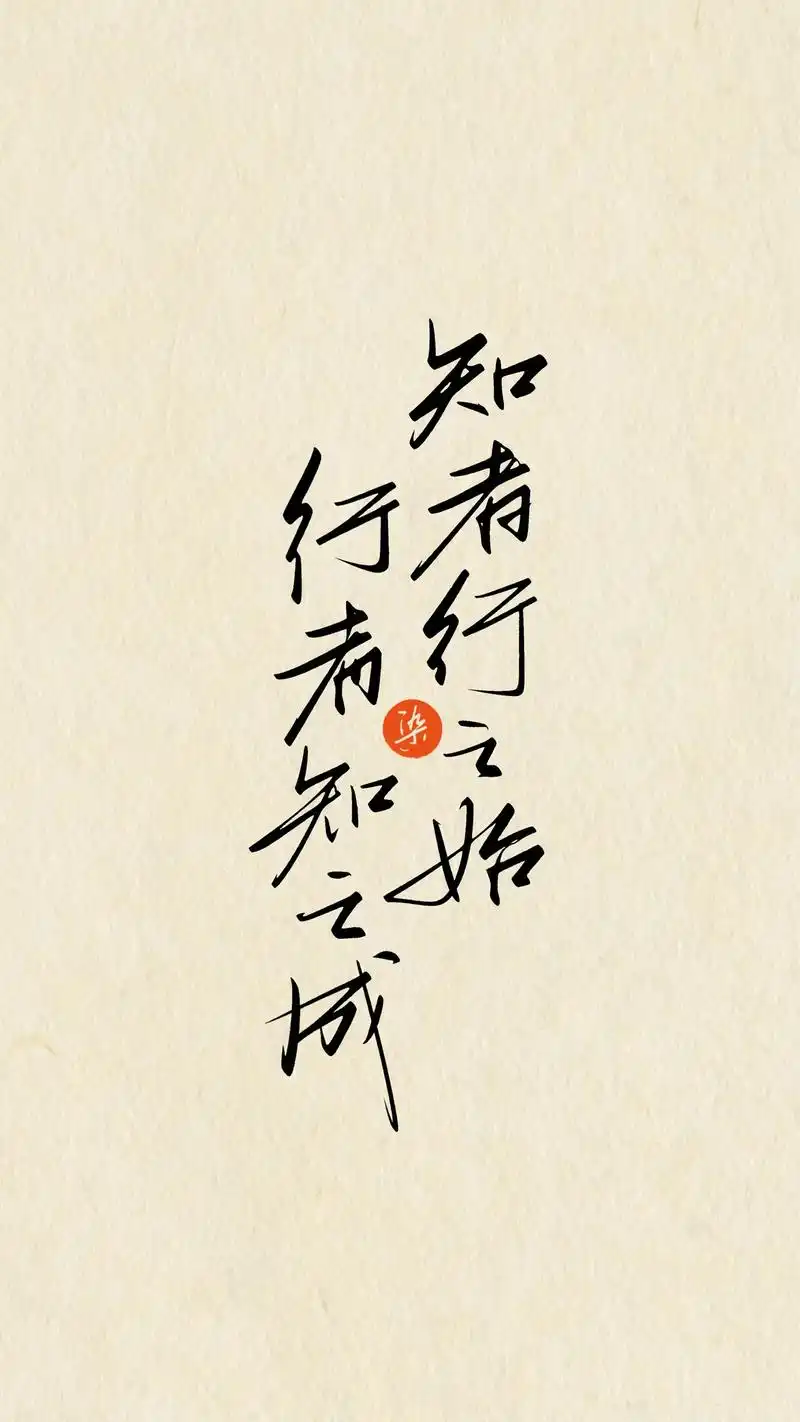 知者行之始
行者知之成
染